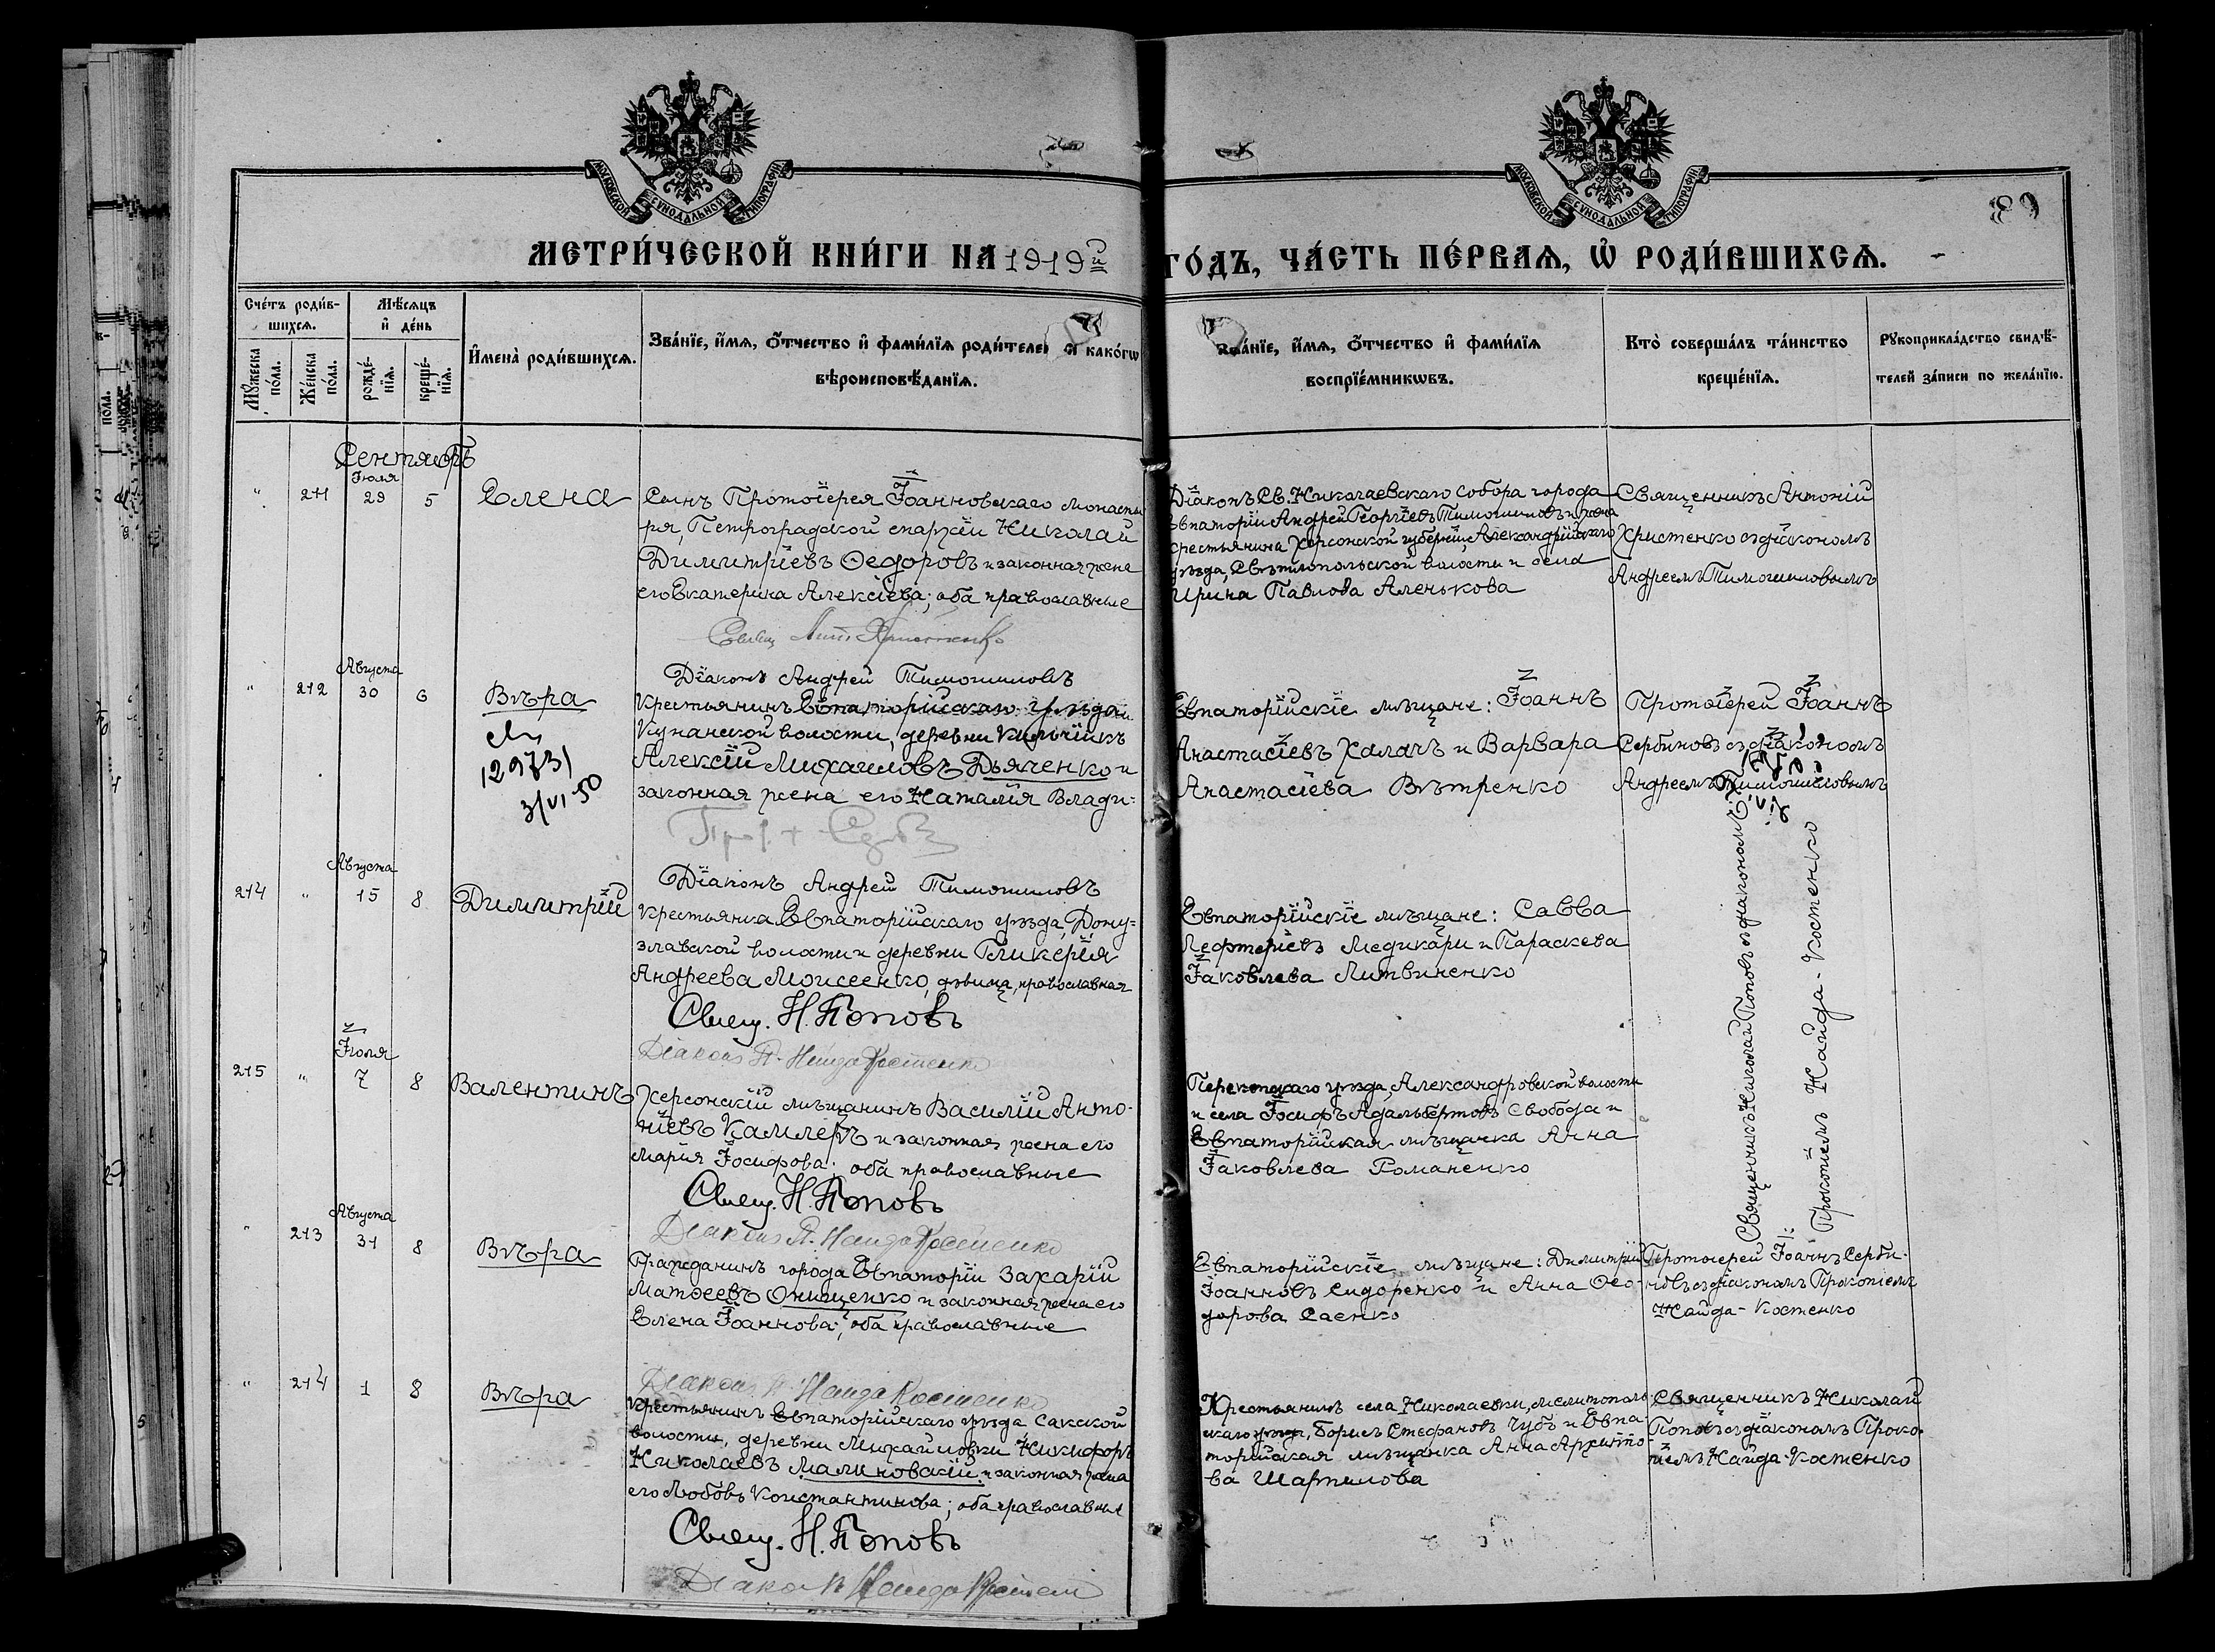 МОСКОВСКОЙ СѴНОДАЛЬНОЙ ТИПОГРАФІИ
МОСКОВСКОЙ СѴНОДАЛЬНОЙ ТИПОГРАФІИ
89
МЕТРИ́ЧЕСКОЙ КНИ́ГИ НА 1919й
ГО́ДЪ, ЧА́СТЬ ПЕ́РВАѦ, Ѡ҆ РОДИ́ВШИХСѦ.
Сче́тъ роди́в-
шихсѧ.
Мѣ́сяцъ
и҆ де́нь
Мꙋ́жеска
по́ла.
Же́нска
по́ла.
рожде́-
нїѧ.
креще́-
нїѧ.
И҆мена̀ роди́вшихсѧ.
Зва́нїе, и҆́мѧ, о҆́тчество и҆ фами́лїѧ роди́телей и како́гѡ
вѣроисповѣ́данїѧ.
Зва́нїе, и҆́мѧ, о҆́тчество и҆ фами́лїѧ
воспрїе́мникѡвъ.
Кто̀ соверша́лъ та́инство
креще́нїѧ.
Рꙋкоприкла́дство свидѣ́-
телей за́писи по жела́нїю.
Сентябрь
" 211 Іюля 29 5 Елена
Сынъ Протоіерея Іоанновскаго монасты
ря, Петроградской епархіи Николай
Димитріевъ Ѳедоровъ и законная жена
его Екатерина Алексіева; оба православные
Діаконъ Св. Николаевскаго собора города
Евпаторіи Андрей Георгіевъ Тимошиловъ и жена
крестьянина Херсонской губерніи, Александрійскаго
уѣзда, Свѣтлопольской волости и села
Ирина Павлова Аленькова
Священникъ Антоній
Христенко съ діакономъ
Андреемъ Тимошиловымъ
Свящ. Ант. Христенко
Діаконъ Андрей Тимошиловъ
" 212 Августа 30 6 Вѣра
12973/
3/VI 50
Крестьянинъ Евпаторійскаго уѣзда
Кунанской волости, деревни Кильчикъ
Алексій Михаиловъ Дьяченко и
законная жена его Наталія Влади=
Евпаторійскіе мѣщане: Іоаннъ
Анастасіевъ Халачъ и Варвара
Анастасіева Вѣтренко
Протоіерей Іоаннъ
Сербиновъ съ діакономъ
Андреемъ Тимошиловымъ
Діаконъ Андрей Тимошиловъ
214 " Августа 15 8 Димитрій
Крестьянка Евпаторійскаго уѣзда, Дону=
злавской волости и деревни Гликерія
Андреева Моисеенко, дѣвица, православная
Евпаторійскіе мѣщане: Савва
Лефтеріевъ Медикари и Параскева
Іаковлева Литвиненко
Священникъ Николай Поповъ съ діакономъ
Прокопіемъ Найда-Костенко
Свящ. Н. Поповъ
Діаконъ П. Найда Костенко
215 " Іюля 7 8 Валентинъ
Херсонскій мѣщанинъ Василій Анто-
ніевъ Камлеръ и законная жена его
Марія Іосифова; оба православные
Перекопскаго уѣзда, Александровской волости
и села Іосифъ Адальбертовъ Свобода и
Евпаторійская мѣщанка Анна
Іаковлева Романенко
Свящ. Н. Поповъ
Діаконъ П. Найда Костенко
" 213 Августа 31 8 Вѣра
Гражданинъ города Евпаторіи Захарій
Матѳеевъ Онищенко и законная жена его
Елена Іоаннова; оба православные
Евпаторійскіе мѣщане: Димитрій
Іоанновъ Сидоренко и Анна Ѳео-
дорова Саенко
Протоіерей Іоаннъ Серби-
новъ съ діакономъ Прокопіемъ
Найда-Костенко
Діаконъ П. Найда Костенко
" 214 1 8 Вѣра
Крестьянинъ Евпаторійскаго уѣзда Сакской
волости, деревни Михайловки Никифоръ
Николаевъ Малиновскій и законная жена
его Любовь Константинова; оба православные
Крестьянинъ села Николаевки, Мелитополь-
скаго уѣзда, Борисъ Стефановъ Чубъ и Евпа-
торійская мѣщанка Анна Архиппо-
ва Шарпилова
Священникъ Николай
Поповъ съ діакономъ Проко-
піемъ Найда-Костенко
Свящ. Н. Поповъ
Діакон П Найда Костен